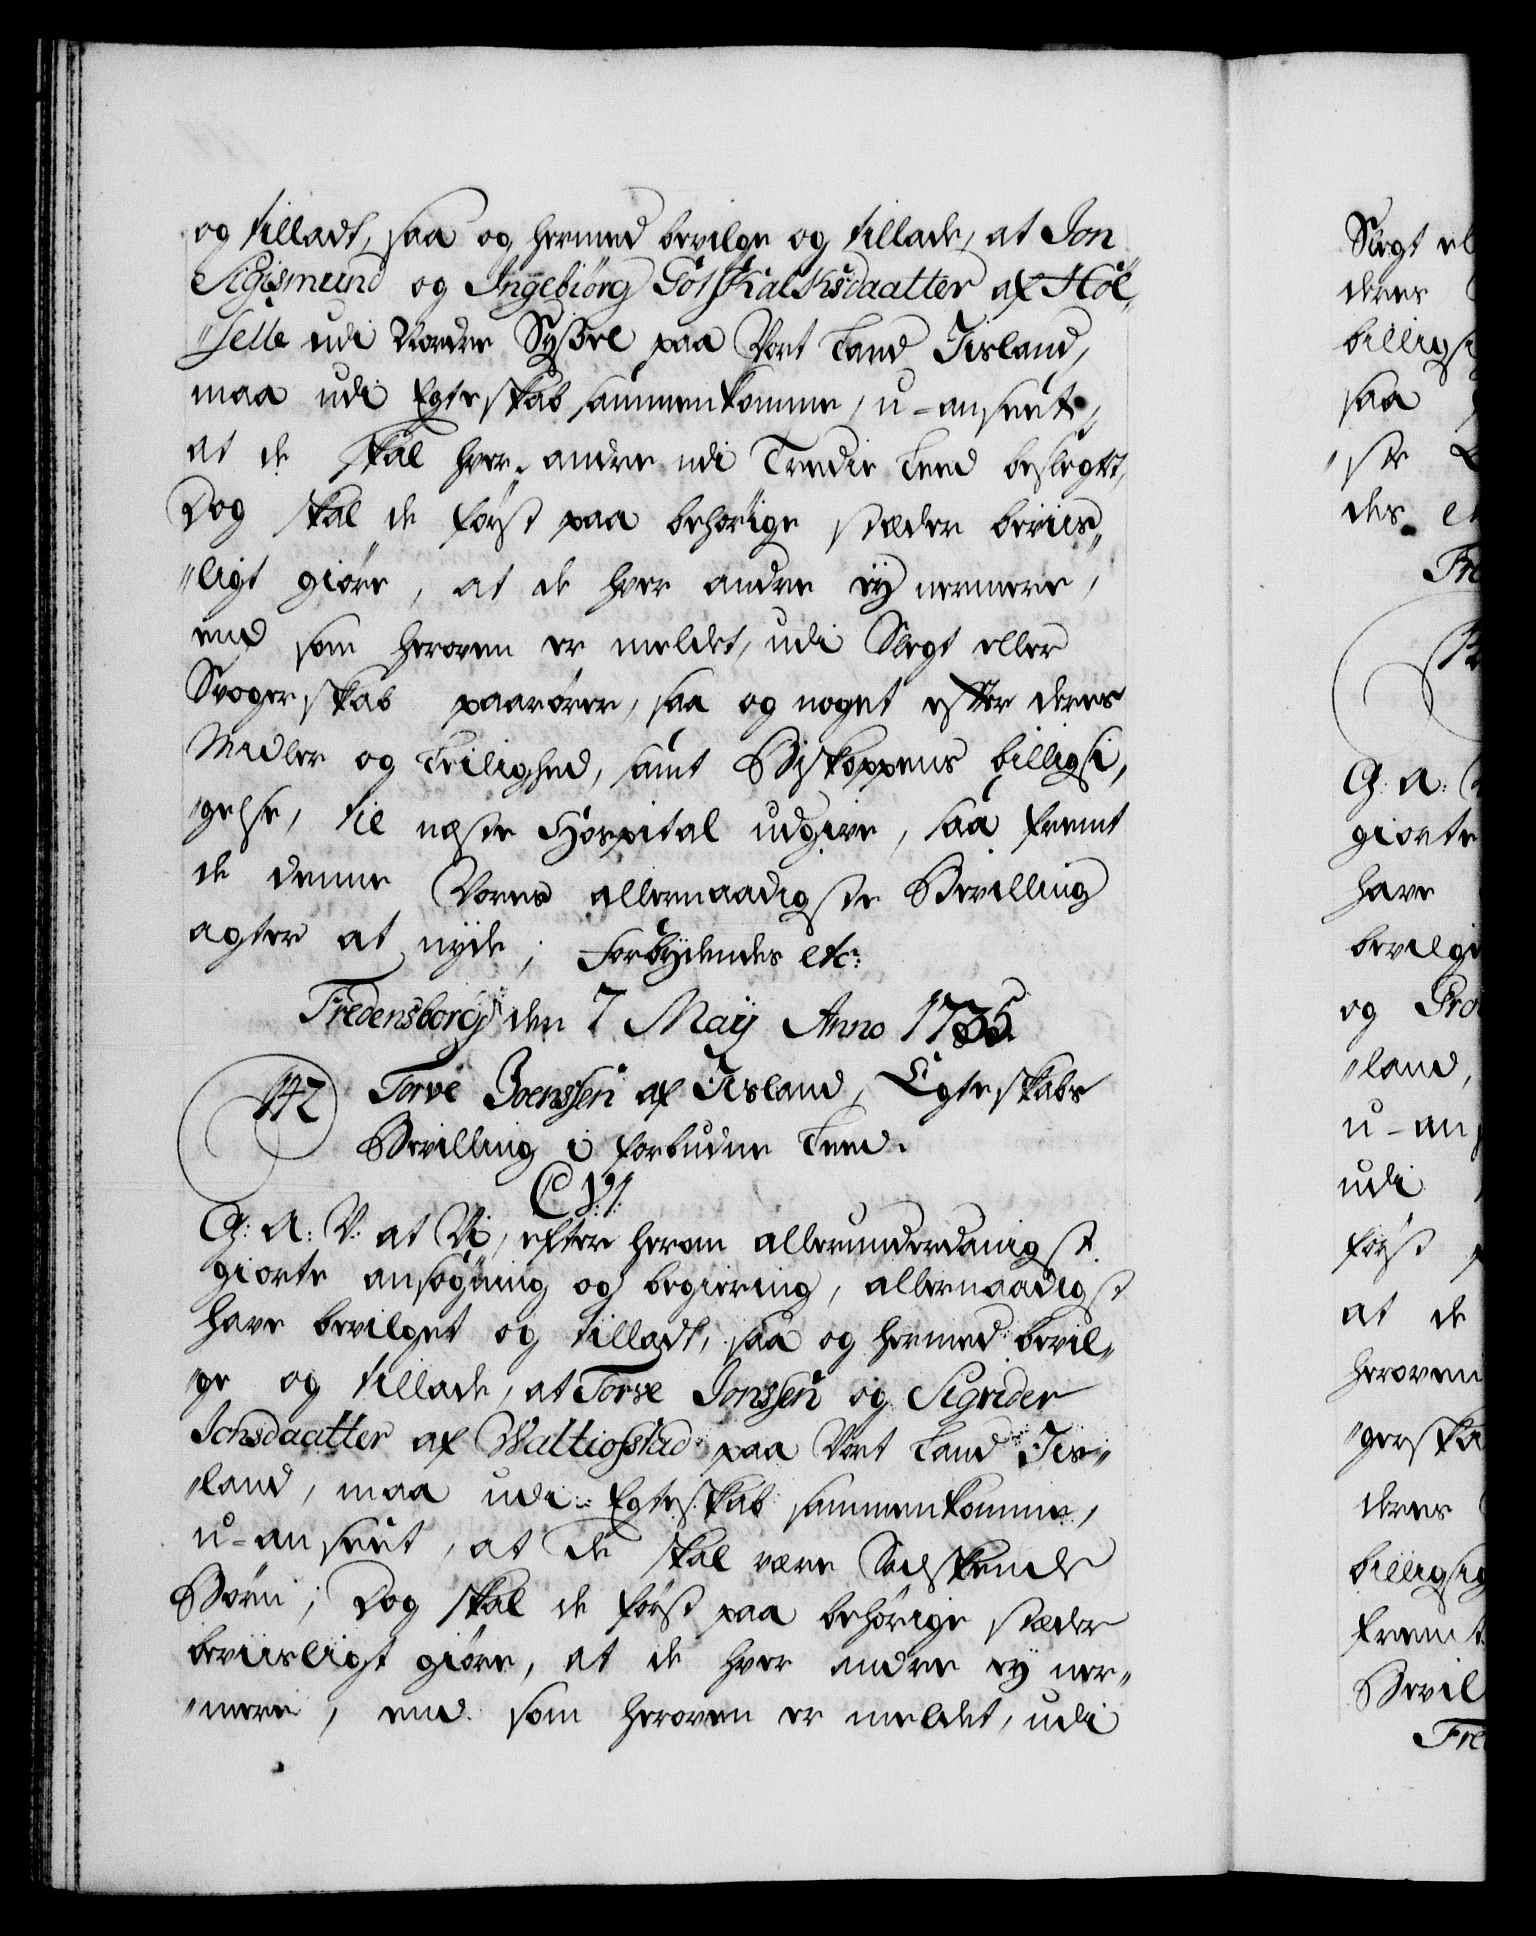 og tilladt, saa og hermed bevilge og tillade, at Jon
Sigismund og Ingebiörg Götskalksdaatter af Höl„
„selle udi Nordre Syssel paa Vort Land Iisland,
maa udi Egteskab sammenkomme, u-anseet,
at de skal hver andre udi Tredie Leed beslegtet,
Dog skal de först paa behörige stæder beviis„
„ligt giöre, at de hver andre ey nermere,
end som heroven er meldet, udi Slegt eller
Svogerskab paarörer, saa og noget efter deres
Midler og Leilighed, samt Biskoppens billigsi„
„gelse, til næste Hospital udgive, saa fremt
de denne Vores allernaadigste Bevilling
agter at nyde; Forbydendes etc:
Fredensborg den 7 Maij Anno 1735.
142 Torve Joenssen af Iisland, Egteskabs
Bevilling i forbudne Leed.
C VI.
G: A: V: at Vi, efter herom allerunderdanigst
giorte ansögning og begiering, allernaadigst
have bevilget og tilladt, saa og hermed bevil„
„ge og tillade, at Torve Jonssen og Sigrider
Jonsdaatter af Waltiofstad paa Vort Land Iis„
„land, maa udi Egteskab sammenkomme,
u-anseet, at de skal være Sodskende
Börn; Dog skal de först paa behörige stæder
beviisligt giöre, at de hver andre ey ner„
„mere, end som heroven er meldet, udi
Slegt el
deres
billigsi
saa
„ste
des
Fre
G: A:
giorte
have
bevilge
og
„land,
u-an
udi
först
at de
heroven
„gerska
deres
billigsig
fremt
Bevil
Fre